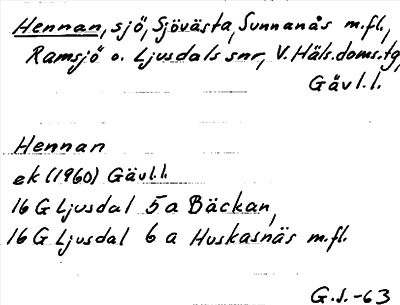 Hennan, sjö, Sjövästa, Sunnanås m.fl.,
Ramsjö o. Ljusdals snr, V. Häls. doms.tg,
Gävl.l.
Hennan
ek (1960) Gävl.l.
16 G Ljusdal 5 a Bäckan,
16 G Ljusdal 6 a Huskasnäs m.fl.
G.S.-63